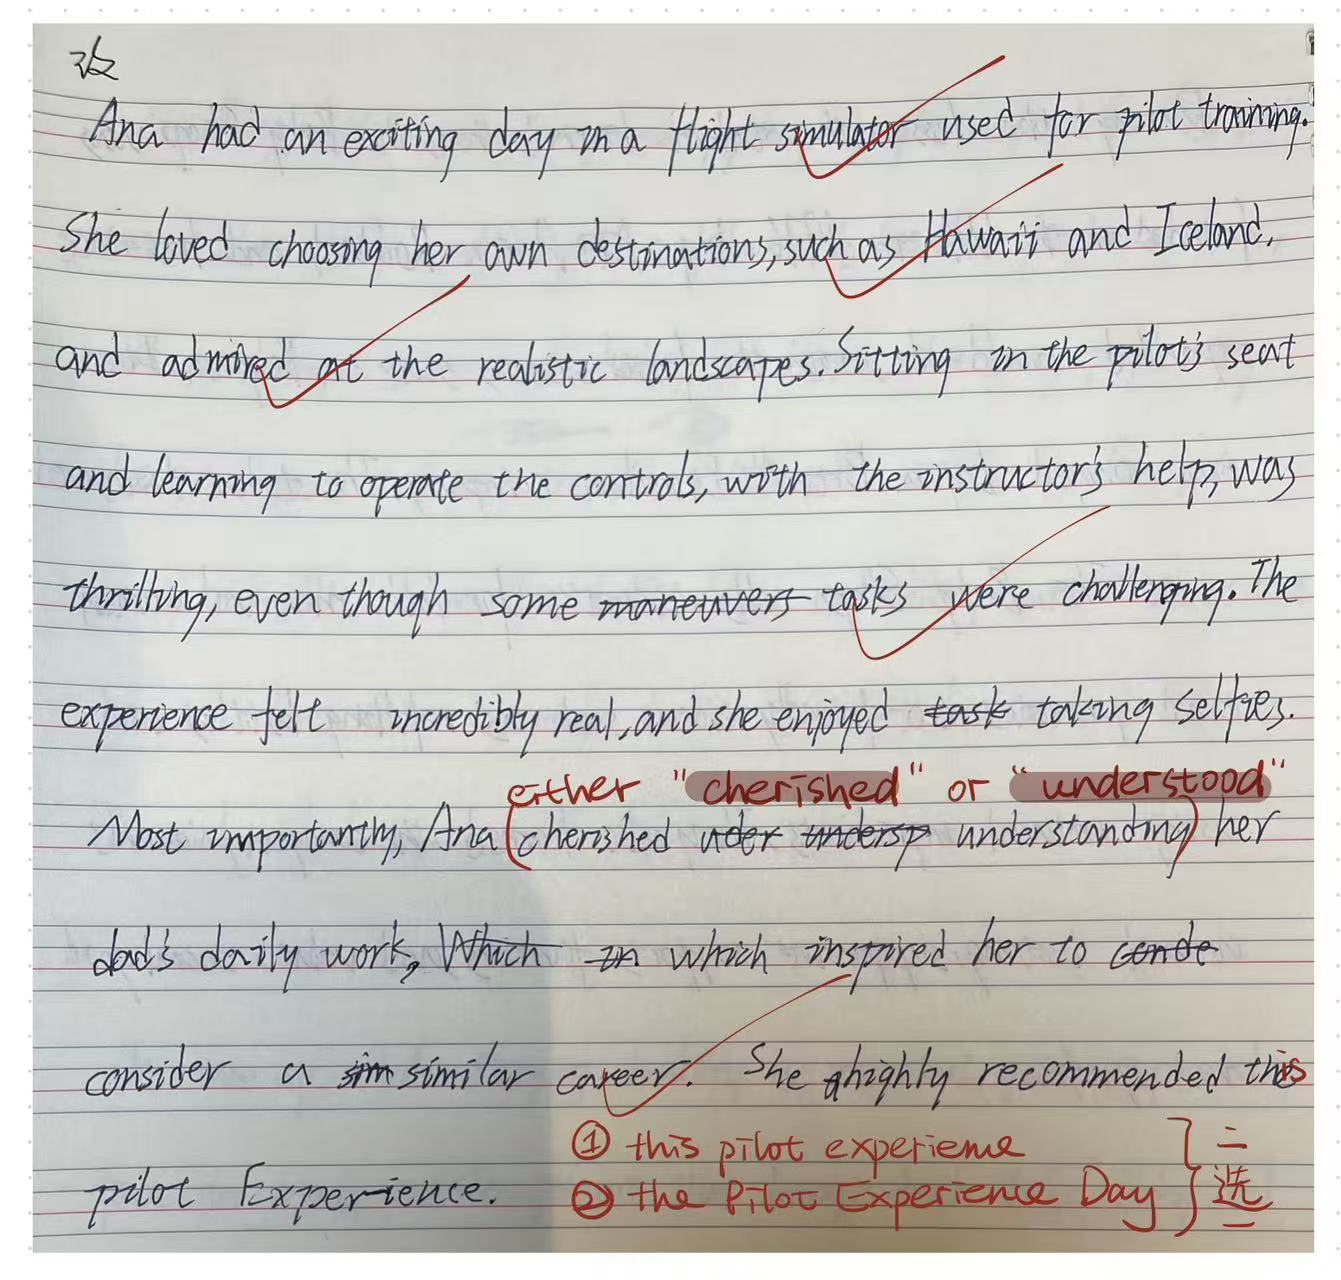 改
Ana had an exciting day in a flight simulator used for pilot training.
She loved choosing her own destinations, such as Hawaii and Iceland,
and admired at the realistic landscapes. Sitting in the pilot's seat
and learning to operate the controls, with the instructor's help, was
thrilling, even though some maneuvers tasks were challenging. The
experience felt incredibly real, and she enjoyed task taking selfies.
either "cherished" or "understood"
Most importantly, Ana (cherished uder undersp understanding) her
dad's daily work, Which in which inspired her to conde
consider a sim similar career. She highly recommended this
① this pilot experience
pilot Experience. ② the Pilot Experience Day } 二选一